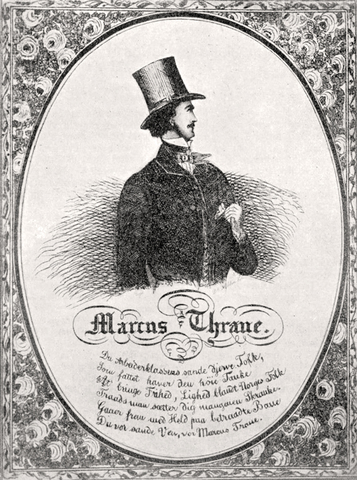 Marcus Thrane.
Du Arbeiderklassens sande djerve Tolk,
Som fattet haver den höie Tanke
At bringe Frihed, Lighed blandt Norges Folk
Traads man sætter dig mangen en Skranke
Gaaer frem med Held paa betraadte Bane
Du vor sande Ven, vor Marcus Trane.